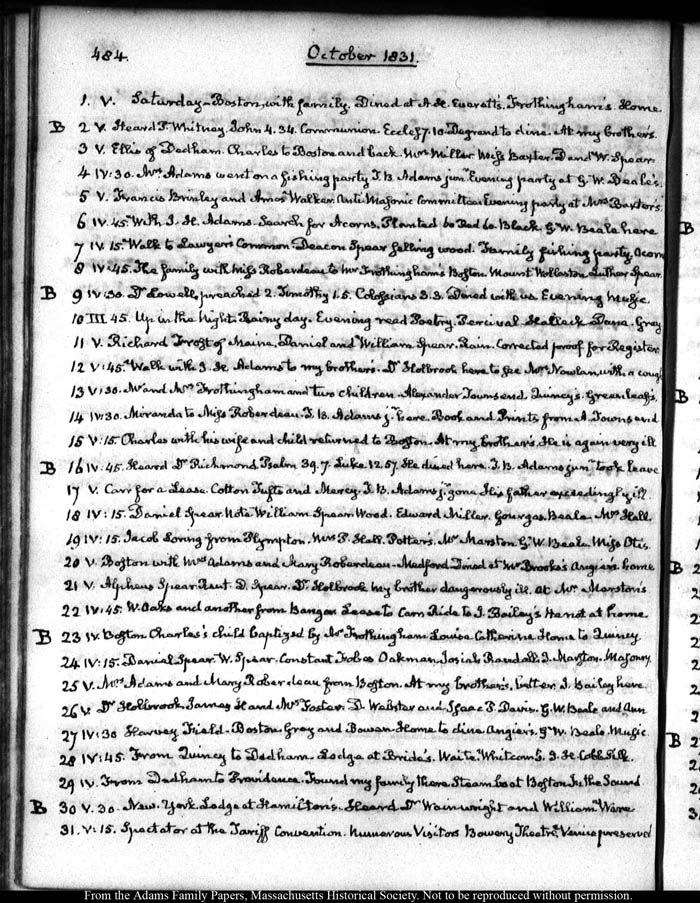 484.
October 1831.
1. V. Saturday – Boston, with family. Dined at A. H. Everett's. Frothingham's. Home
B 2 V. Heard P. Whitney, John 4.34. Communion. Eccles. 7.10. Degrand to dine. At my brother's.
3 V. Ellis of Dedham. Charles to Boston and back. Mrs Miller. Miss Baxter. D and W. Spear
4 IV:30. Mrs Adams went on a fishing party T. B. Adams junr Evening party at G. W. Beale's.
5 V. Francis Brinley and Amos Walker. Anti Masonic Committee Evening party at Mrs Baxter's
6 IV:45. With I. H. Adams. Search for Acorns. Planted 60 Red 60. Black. G. W. Beale here
7 IV.15. Walk to Lawyer's Common – Deacon Spear felling wood. Family fishing party. Acorn
8 IV:45. The family with Miss Roberdeau to Mr Frothingham's Boston. Mount Wollaston. Luther Spear.
B 9 IV:30. Dr Lowell, preached 2. Timothy 1.5. Colossians 3.3. Dined with us. Evening Music.
10 III.45. Up in the Night. Rainy day. Evening read Poetry. Percival Halleck Dana. Gray
11 V. Richard Frost of Maine, Daniel and William Spear. Rain. Corrected proof for Register
12 V:45. Walk with I. H. Adams to my brother's. Dr Holbrook here to see Mrs Nowlan, with a cough
13 V:30. Mr and Mrs Frothingham and two children. Alexander Townsend, Quincy's. Greenleaf's.
14 IV:30. Miranda to Miss Roberdeau. T. B. Adams jr here. Book and Prints from A. Townsend
15 V:15. Charles with his wife and child returned to Boston. At my brother's. He is again very ill
B 16 IV:45. Heard Dr Richmond. Psalm 39.7. Luke. 12.57. He dined here. T. B. Adams junr took leave
17 V. Carr for a Lease. Cotton Tufts and Mercy. T. B. Adams jr gone His father exceedingly ill.
18 IV:15. Daniel Spear Note William Spear. Wood. Edward Miller. Gourgas. Beale. Mrs Hall.
19 IV:15. Jacob Loring from Plympton. Mrs P. Hall. Potter's. Mr Marston G. W. Beale Miss Otis.
20 V. Boston with Mrs Adams and Mary Roberdeau – Medford Dined at Mr Brooks's Angier's home
21 V. Alpheus Spear Rent. D. Spear. Dr Holbrook my brother dangerously ill. At Mr Marston's
22 IV:45. W. Oaks and another from Bangor Lease to Carr Ride to I. Bailey's He not at home
B 23 IV. Boston Charles's child baptized by Mr Frothingham. Louisa Catherine Home to Quincy
24 IV:15. Daniel Spear W. Spear. Constant Fobes Oakman. Josiah Randall. J. Marston. Masonry
25 V. Mrs Adams and Mary Roberdeau from Boston. At my brother's. Letter. I. Bailey here
26 V. Dr Holbrook. James H and Mrs Foster. D. Webster and Isaac P. Davis. G. W. Beale and Ann
27 IV:30 Harvey Field. Boston Gray and Bowen Home to dine Angier's. G. W. Beale Music
28 IV:45. From Quincy to Dedham. Lodge at Bride's. Waite Whitcomb. I. H. Cobb Silk.
29 IV. From Dedham to Providence. Found my family there Steam boat Boston In the Sound
B 30 V.30. New. York Lodge at Hamilton's. Heard Dr Wainwright and William Ware
31. V:15. Spectator at the Tariff Convention. Numerous Visitors Bowery Theatre Venice preserved
From the Adams Family Papers, Massachusetts Historical Society. Not to be reproduced without permission.